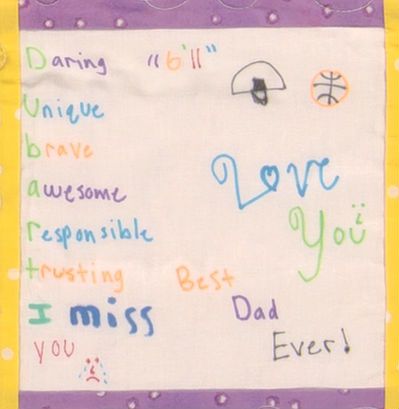 Daring "6'11"
Unique
brave
awesome
Love
You
responsible
trusting
Best
Dad
Ever!
I miss
you